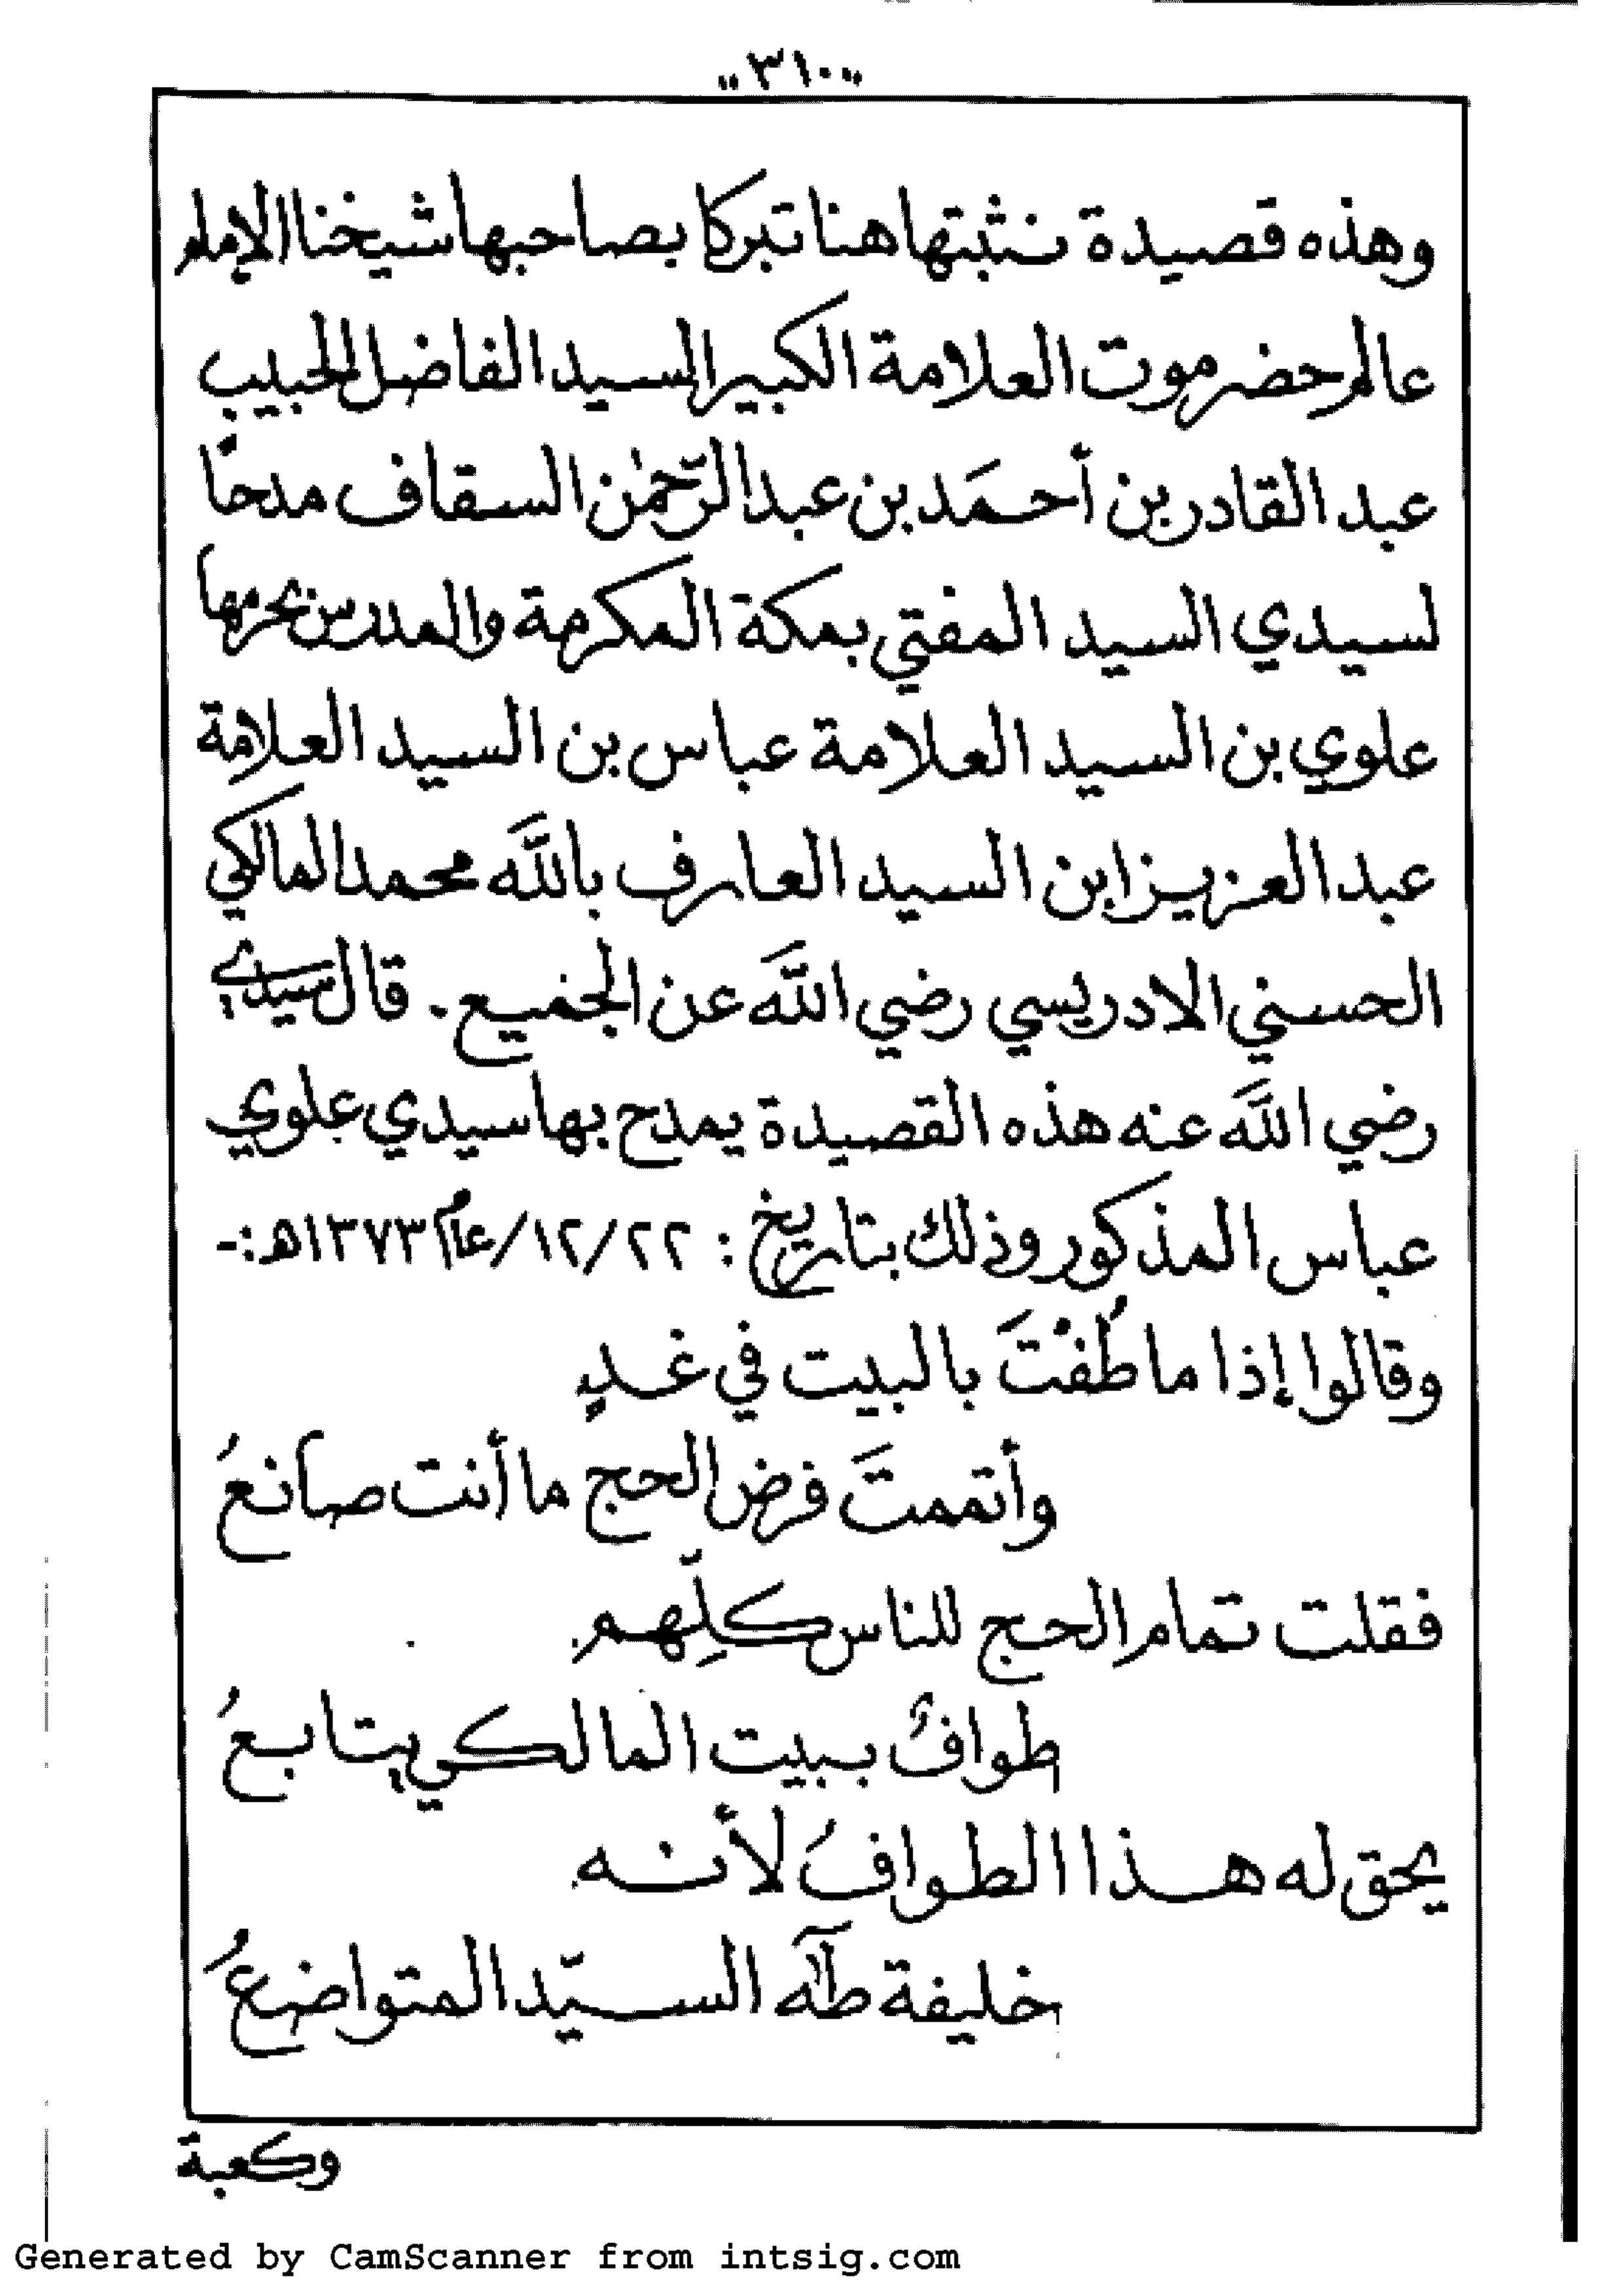 "٣١٠"
وهذه قصيدة نثبتها هنا تبركا بصاحبها شيخنا الإمام
عالم حضرموت العلامة الكبير السيد الفاضل الحبيب
عبد القادر بن أحمَد بن عبد الرّحمٰن السقاف مدحًا
لسيدي السيد المفتي بمكة المكرمة والمدرس بحرمها
علوي بن السيد العلامة عباس بن السيد العلامة
عبد العزيز ابن السيد العارف بالله محمد المالكي
الحسني الادريسي رضي الله عن الجميع. قال سيدي
رضي الله عنه هذه القصيدة يمدح بها سيدي علوي
عباس المذكور وذلك بتاريخ: ٢٢/١٢/عام ١٣٧٣هـ:-
وقالوا إذا ما طُفْتَ بالبيت في غدٍ
وأتممتَ فرض الحج ما أنت صانعُ
فقلت تمام الحج للناس كلِّهم
طوافٌ ببيت المالكي يتابعُ
يحق له هذا الطوافُ لأنه
خليفة طٰه السيّد المتواضعُ
وكعبة
Generated by CamScanner from intsig.com